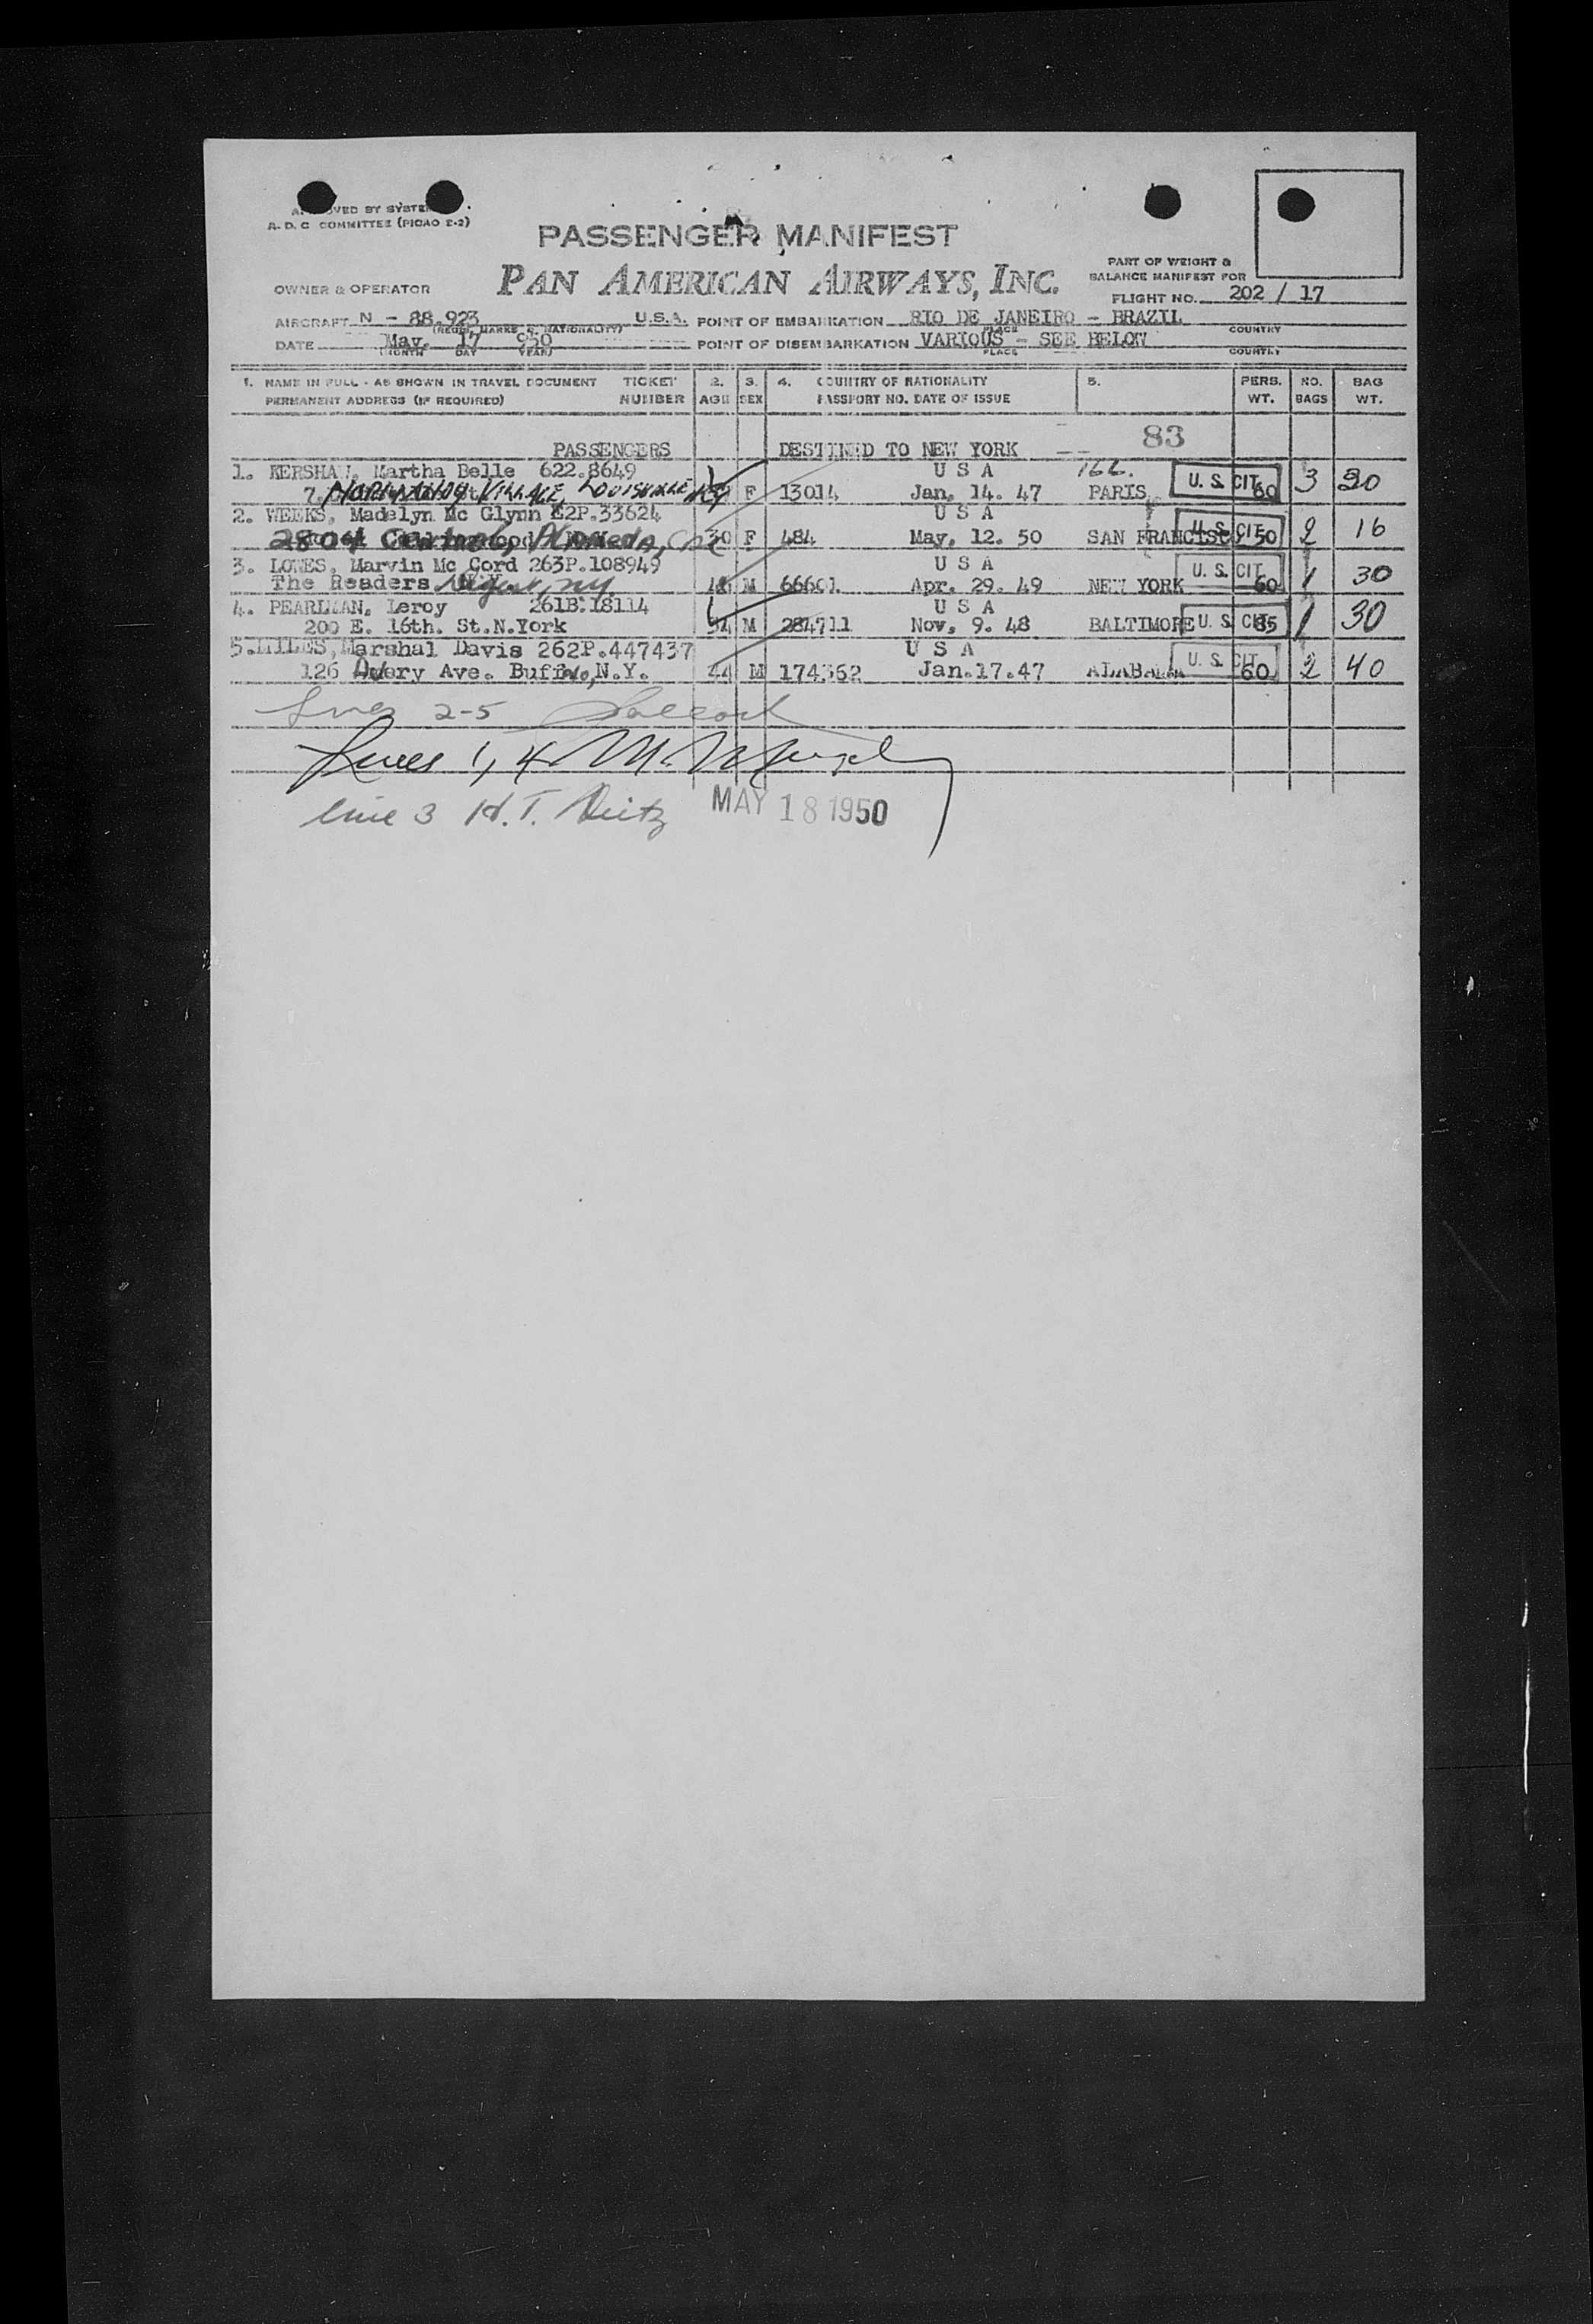 APPROVED BY SYSTEM
A. D. C. COMMITTEE (PICAO E-2)
PASSENGER MANIFEST
PAN AMERICAN AIRWAYS, INC.
PART OF WEIGHT &
BALANCE MANIFEST FOR
FLIGHT NO. 202 / 17
OWNER & OPERATOR
AIRCRAFT N - 88.923 U.S.A. POINT OF EMBARKATION RIO DE JANEIRO - BRAZIL
(REGIS. MARKS & NATIONALITY) PLACE COUNTRY
DATE May. 17 950 POINT OF DISEMBARKATION VARIOUS - SEE BELOW
(MONTH DAY YEAR) PLACE COUNTRY
1. NAME IN FULL - AS SHOWN IN TRAVEL DOCUMENT TICKET 2. 3. 4. COUNTRY OF NATIONALITY 5. PERS. NO. BAG
PERMANENT ADDRESS (IF REQUIRED) NUMBER AGE SEX PASSPORT NO. DATE OF ISSUE WT. BAGS WT.
PASSENGERS DESTINED TO NEW YORK -- 83
1. KERSHAW, Martha Belle 622.8649 U S A 166. U. S. CIT.
7. NORMANDY VILLAGE, LOUISVILLE F 13014 Jan. 14. 47 PARIS 60 3 20
2. WEEKS, Madelyn Mc Glynn E2P.33624 U S A U. S. CIT.
2804 Alameda, Cal 30 F 484 May. 12. 50 SAN FRANCISCO 50 2 16
3. LOWES, Marvin Mc Cord 263P.108949 U S A U. S. CIT.
The Readers Digest, NY 48 M 66601 Apr. 29. 49 NEW YORK 60 1 30
4. PEARLMAN, Leroy 261B.18114 U S A
200 E. 16th. St.N.York 34 M 284711 Nov. 9. 48 BALTIMORE U. S. CIT. 85 1 30
5. MILES, Marshal Davis 262P.447437 U S A U. S. CIT.
126 Avery Ave. Buffalo, N.Y. 44 M 174362 Jan.17.47 ALABAMA 60 2 40
Lines 2-5
Lines 1, 4
line 3 H.T. MAY 18 1950